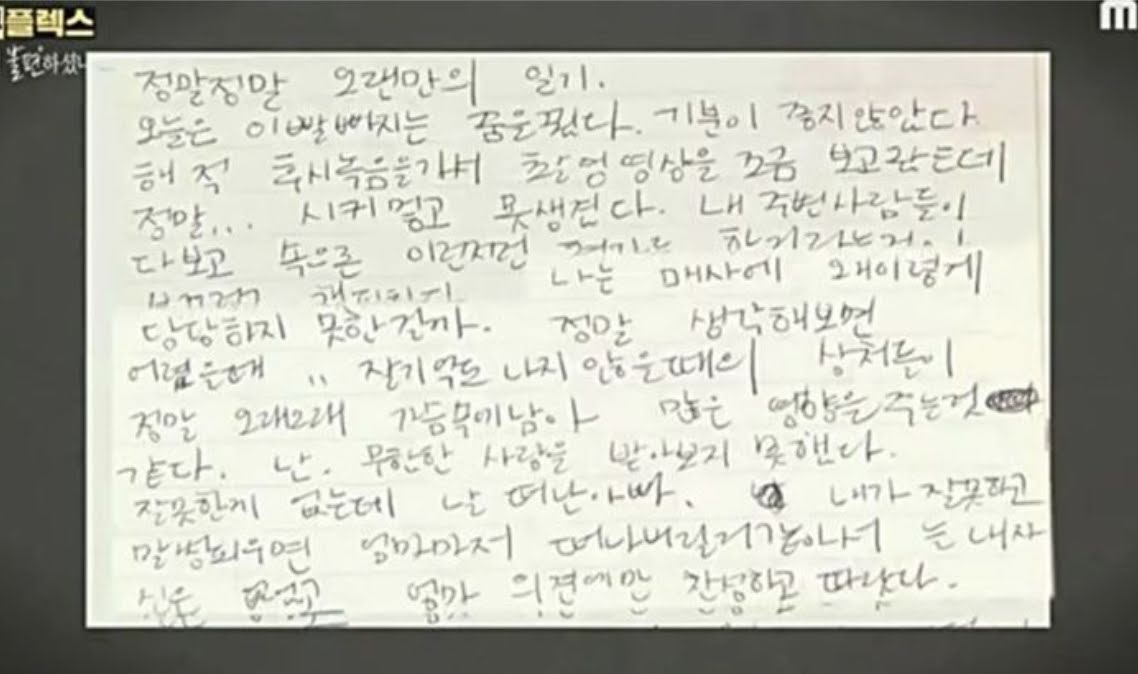 플렉스
불편하셨나
M
정말정말 오랜만의 일기.
오늘은 이빨빠지는 꿈을꿨다. 기분이 좋지않았다
해적 후시녹음을가서 촬영영상을 조금 보고왔는데
정말... 시커멓고 못생겼다. 내 주변사람들이
다보고 속으론 이런저런 얘기도
나는 매사에 왜이렇게
당당하지 못한걸까. 정말 생각해보면
어렸을때 .. 잘기억도 나지 않을때의 상처들이
정말 오래오래 가슴속에남아 많은 영향을 주는것
같다. 난. 무한한 사랑을 받아보지 못했다.
잘못한게 없는데 날 떠난아빠. 내가 잘못하고
말썽피우면 엄마마저 떠나버릴거같아서 늘 내자
신은 없었고 엄마 의견에만 찬성하고 따랐다.